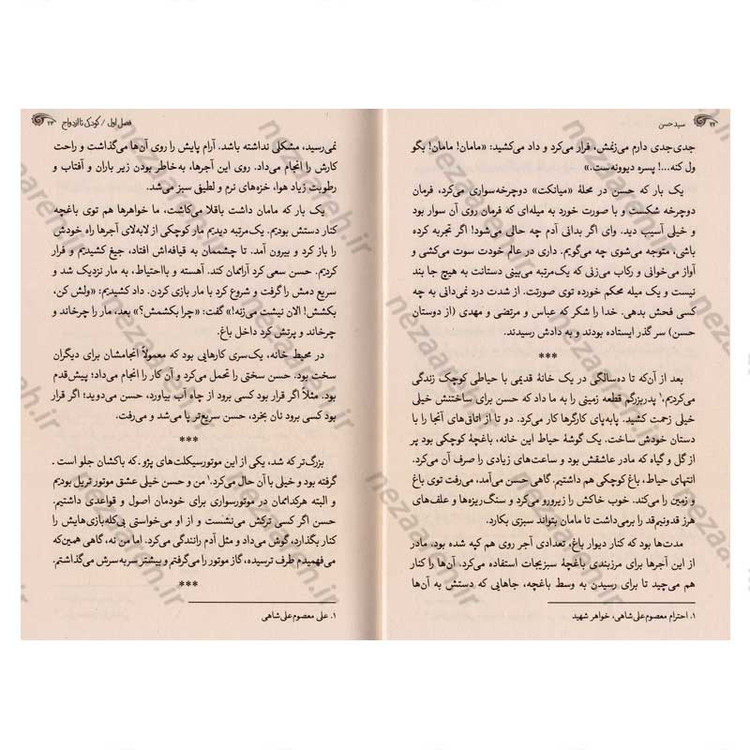 ۲۲ سید حسن
جدی‌جدی دارم می‌زنمش، فرار می‌کرد و داد می‌کشید: «مامان! مامان! بگو
ول کنه...! پسره دیوونه‌ست.»
یک بار که حسن در محلهٔ «میانکت» دوچرخه‌سواری می‌کرد، فرمان
دوچرخه شکست و با صورت خورد به میله‌ای که فرمان روی آن سوار بود
و خیلی آسیب دید. وای اگر بدانی آدم چه حالی می‌شود! اگر تجربه کرده
باشی، متوجه می‌شوی چه می‌گویم. داری در عالم خودت سوت می‌کشی و
آواز می‌خوانی و رکاب می‌زنی که یک‌مرتبه می‌بینی دستانت به هیچ جا بند
نیست و یک میله محکم خورده توی صورتت. از شدت درد نمی‌دانی به چه
کسی فحش بدهی. خدا را شکر که عباس و مرتضی و مهدی (از دوستان
حسن) سر گذر ایستاده بودند و به دادش رسیدند.
***
بعد از آن‌که تا ده‌سالگی در یک خانهٔ قدیمی با حیاطی کوچک زندگی
می‌کردیم،۱ پدربزرگم قطعه زمینی را به ما داد که حسن برای ساختنش خیلی
خیلی زحمت کشید. پابه‌پای کارگرها کار می‌کرد. دو تا از اتاق‌های آنجا را با
دستان خودش ساخت. یک گوشهٔ حیاط این خانه، باغچهٔ کوچکی بود پر
از گل و گیاه که مادر عاشقش بود و ساعت‌های زیادی را صرف آن می‌کرد.
انتهای حیاط، باغ کوچکی هم داشتیم. گاهی حسن می‌آمد، می‌رفت توی باغ
و زمین را می‌کند. خوب خاکش را زیرورو می‌کرد و سنگ‌ریزه‌ها و علف‌های
هرز قدونیم‌قد را برمی‌داشت تا مامان بتواند سبزی بکارد.
مدت‌ها بود که کنار دیوار باغ، تعدادی آجر روی هم کپه شده بود. مادر
از این آجرها برای مرزبندی باغچهٔ سبزیجات استفاده می‌کرد. آن‌ها را کنار
هم می‌چید تا برای رسیدن به وسط باغچه، جاهایی که دستش به آن‌ها
۱. احترام معصوم‌علی‌شاهی، خواهر شهید
فصل اول / کودکی تا ازدواج ۲۳
نمی‌رسید، مشکلی نداشته باشد. آرام پایش را روی آن‌ها می‌گذاشت و راحت
کارش را انجام می‌داد. روی این آجرها، به‌خاطر بودن زیر باران و آفتاب و
رطوبت زیاد هوا، خزه‌های نرم و لطیفی سبز می‌شد.
یک بار که مامان داشت باقلا می‌کاشت، ما خواهرها هم توی باغچه
کنار دستش بودیم. یک‌مرتبه دیدیم مار کوچکی از لابه‌لای آجرها راه خودش
را باز کرد و بیرون آمد. تا چشممان به قیافه‌اش افتاد، جیغ کشیدیم و فرار
کردیم. حسن سعی کرد آرامتان کند. آهسته و بااحتیاط، به مار نزدیک شد و
سریع دمش را گرفت و شروع کرد با مار بازی کردن. داد کشیدیم: «ولش کن،
بکشش! الان نیشت می‌زنه!» گفت: «چرا بکشمش؟» بعد، مار را چرخاند و
چرخاند و پرتش کرد داخل باغ.
در محیط خانه، یک‌سری کارهایی بود که معمولاً انجامشان برای دیگران
سخت بود. حسن سختی را تحمل می‌کرد و آن کار را انجام می‌داد؛ پیش‌قدم
بود. مثلاً اگر قرار بود کسی برود از چاه آب بیاورد، حسن می‌دوید؛ اگر قرار
بود کسی برود نان بخرد، حسن سریع‌تر پا می‌شد و می‌رفت.
***
بزرگ‌تر که شد، یکی از این موتورسیکلت‌های پژو که باکشان جلو است
گرفته بود و خیلی با آن حال می‌کرد.۱ من و حسن خیلی عشق موتور تریل بودیم
و البته هرکداممان در موتورسواری برای خودمان اصول و قواعدی داشتیم.
حسن اگر کسی ترکش می‌نشست و از او می‌خواستی بی‌کله‌بازی‌هایش را
کنار بگذارد، گوش می‌داد و مثل آدم رانندگی می‌کرد. اما من نه، گاهی همین‌که
می‌فهمیدم طرف ترسیده، گاز موتور را می‌گرفتم و بیشتر سربه‌سرش می‌گذاشتم.
***
۱. علی معصوم‌علی‌شاهی
nezaareh.ir